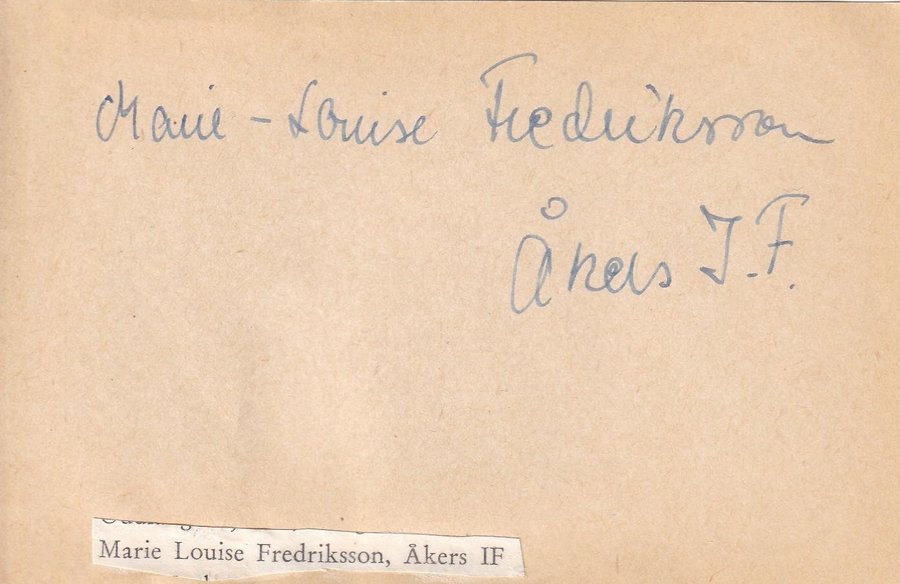 Marie-Louise Fredriksson
Åkers I.F.
Marie Louise Fredriksson, Åkers IF